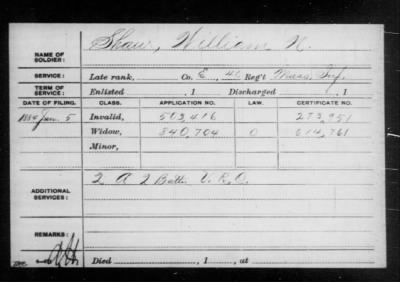 NAME OF SOLDIER: Shaw, William N.
SERVICE: Late rank, Co. E, 40 Reg't Mass. Inf.
TERM OF SERVICE: Enlisted , 1 Discharged , 1
DATE OF FILING. CLASS. APPLICATION NO. LAW. CERTIFICATE NO.
1884 Jan. 5 Invalid, 503,416 273,951
Widow, 840,704 O 614,761
Minor,
ADDITIONAL SERVICES: 2 A 2 Batt. V.R.C.
REMARKS:
Died , 1 , at